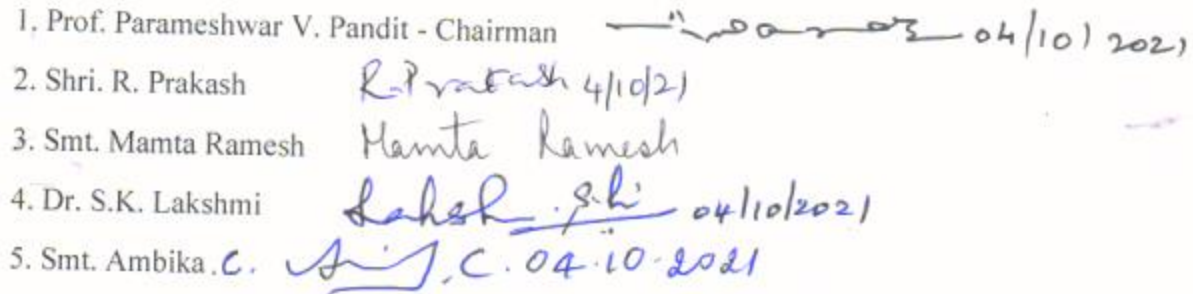 1. Prof. Parameshwar V. Pandit - Chairman 04/10/2021
2. Shri. R. Prakash R. Prakash 4/10/21
3. Smt. Mamta Ramesh Mamta Ramesh
4. Dr. S.K. Lakshmi 04/10/2021
5. Smt. Ambika .C. C. 04.10.2021